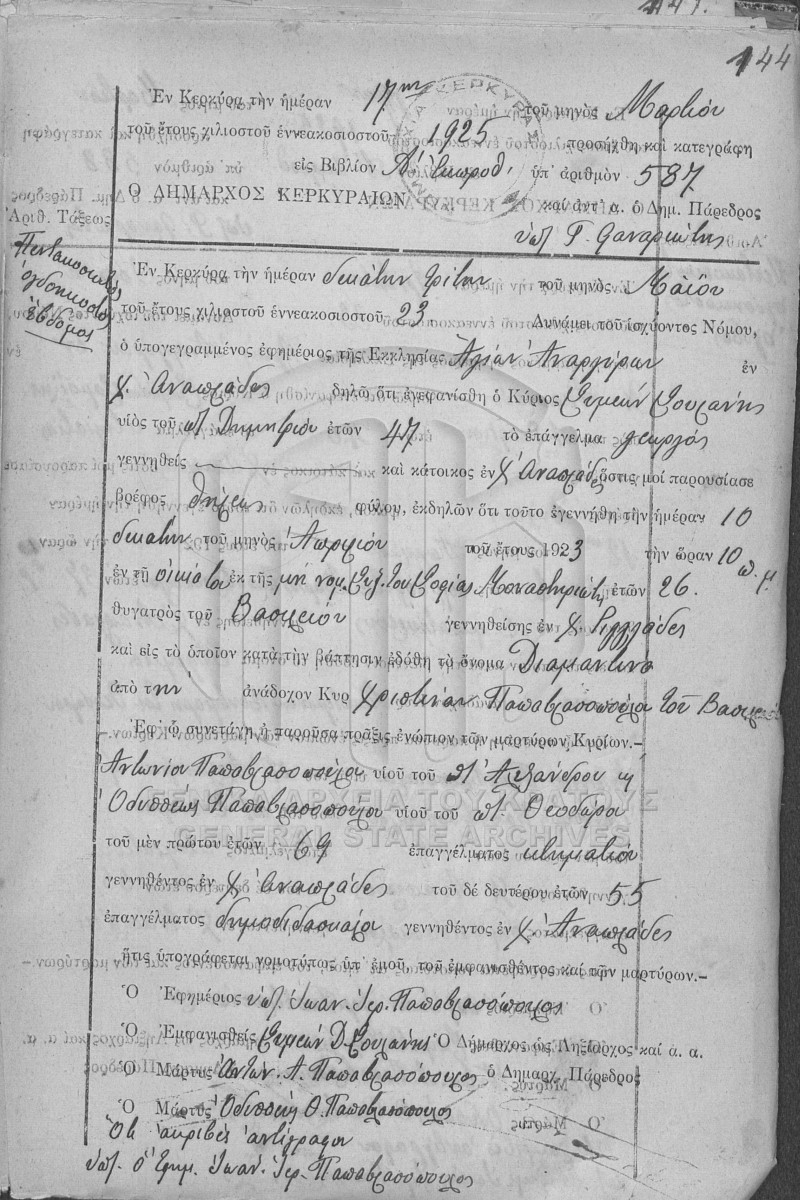 144
Ἐν Κερκύρα τὴν ἡμέραν 17ην τοῦ μηνὸς Μαρτίου
τοῦ ἔτους χιλιοστοῦ ἐννεακοσιοστοῦ 1925 προσήχθη καὶ κατεγράφη
εἰς Βιβλίον Α΄ Ἐκπροθ. ὑπ᾿ ἀριθμὸν 587
Ο ΔΗΜΑΡΧΟΣ ΚΕΡΚΥΡΑΙΩΝ καὶ ἀντ᾿ α. ὁ Δημ. Πάρεδρος
Ἀριθ. Τάξεως
Πεντακοσιοστὸς
ὀγδοηκοστὸς
ἕβδομος
Ἐν Κερκύρα τὴν ἡμέραν δεκάτην τρίτην τοῦ μηνὸς Μαΐου
τοῦ ἔτους χιλιοστοῦ ἐννεακοσιοστοῦ 23 Δυνάμει τοῦ ἰσχύοντος Νόμου,
ὁ ὑπογεγραμμένος ἐφημέριος τῆς Ἐκκλησίας Ἁγίων Ἀναργύρων ἐν
χ. Ἀναπλάδες δηλῶ ὅτι ἐνεφανίσθη ὁ Κύριος Συμεὼν Σουλάνης
υἱὸς τοῦ π. Δημητρίου ἐτῶν 47 τὸ ἐπάγγελμα γεωργὸς
γεννηθεὶς καὶ κάτοικος ἐν χ Ἀναπλάδες ὅστις μοὶ παρουσίασε
βρέφος θήλεος φύλου, ἐκδηλῶν ὅτι τοῦτο ἐγεννήθη τὴν ἡμέραν 10
δεκάτην τοῦ μηνὸς Ἀπριλίου τοῦ ἔτους 1923 τὴν ὥραν 10 π. μ.
ἐν τῇ οἰκίᾳ του ἐκ τῆς μὴ νομ. συζ. του Σοφίας Μοναστηριώτη ἐτῶν 26.
θυγατρὸς τοῦ Βασιλείου γεννηθείσης ἐν χ.
καὶ εἰς τὸ ὁποῖον κατὰ τὴν βάπτισιν ἐδόθη τὸ ὄνομα Διαμαντίνα
ἀπὸ τὴν ἀνάδοχον Κυρ Χριστίναν Παπαβλασοπούλου τοῦ Βασιλείου
Ἐφ᾿ ᾧ συνετάγη ἡ παροῦσα πρᾶξις ἐνώπιον τῶν μαρτύρων Κυρίων.—
Ἀντωνίου Παπαβλασοπούλου υἱοῦ τοῦ π. Ἀλεξάνδρου κ
Ὀδυσσέως Παπαβλασοπούλου υἱοῦ τοῦ π. Θεοδώρου
ΓΕΝΙΚΑ ΑΡΧΕΙΑ ΤΟΥ ΚΡΑΤΟΥΣ
GENERAL STATE ARCHIVES
τοῦ μὲν πρώτου ἐτῶν 69 ἐπαγγέλματος κτηματίου
γεννηθέντος ἐν χ Ἀναπλάδες τοῦ δέ δευτέρου ἐτῶν 55
ἐπαγγέλματος δημοδιδασκάλου γεννηθέντος ἐν χ. Ἀναπλάδες
ἥτις ὑπογράφεται νομοτύπως ὑπ᾿ ἐμοῦ, τοῦ ἐμφανισθέντος καὶ τῶν μαρτύρων.—
Ὁ Ἐφημέριος ὑπ. Ἰωάν. Ἱερ. Παπαβλασόπουλος
Ὁ Ἐμφανισθεὶς Συμεὼν Δ. Σουλάνης Ὁ Δήμαρχος ὡς Ληξίαρχος καὶ ἀ. α.
Ὁ Μάρτυς Ἀντών. Α. Παπαβλασόπουλος ὁ Δημαρχ. Πάρεδρος
Ὁ Μάρτυς Ὀδυσσεὺς Θ. Παπαβλασόπουλος
Ὅτι ἀκριβὲς ἀντίγραφον
ὑπ. ὁ Ἐφημ. Ἰωάν. Ἱερ. Παπαβλασόπουλος